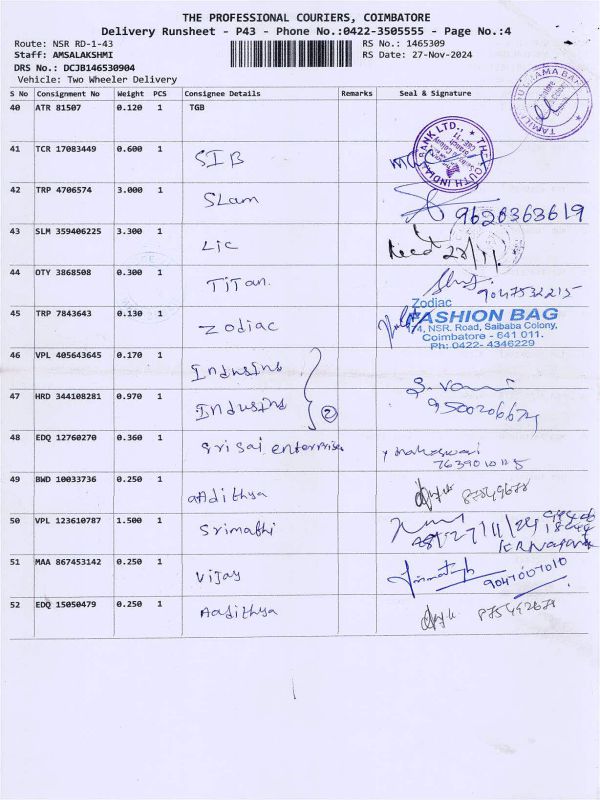 THE PROFESSIONAL COURIERS, COIMBATORE
Delivery Runsheet - P43 - Phone No.:0422-3505555 - Page No.:4
Route: NSR RD-1-43 RS No.: 1465309
Staff: AMSALAKSHMI RS Date: 27-Nov-2024
DRS No.: DCJB146530904
Vehicle: Two Wheeler Delivery
S No Consignment No Weight PCS Consignee Details Remarks Seal & Signature
40 ATR 81507 0.120 1 TGB
41 TCR 17083449 0.600 1 SIB
THE SOUTH INDIAN BANK LTD.
42 TRP 4706574 3.000 1 SLam 9620363619
43 SLM 359406225 3.300 1 Lic Recd 28/11
44 OTY 3868508 0.300 1 TiTan. 9047532215
45 TRP 7843643 0.130 1 Zodiac
Zodiac
FASHION BAG
74, NSR. Road, Saibaba Colony,
Coimbatore - 641 011.
Ph: 0422- 4346229
46 VPL 405643645 0.170 1 IndusInd
47 HRD 344108281 0.970 1 IndusInd 2
48 EDQ 12760270 0.360 1 Sri Sai enterprises
49 BWD 10033736 0.250 1 aAdithya
50 VPL 123610787 1.500 1 Srimathi 27/11/24
KR Nagar
51 MAA 867453142 0.250 1 Vijay 9047007010
52 EDQ 15050479 0.250 1 Aadithya